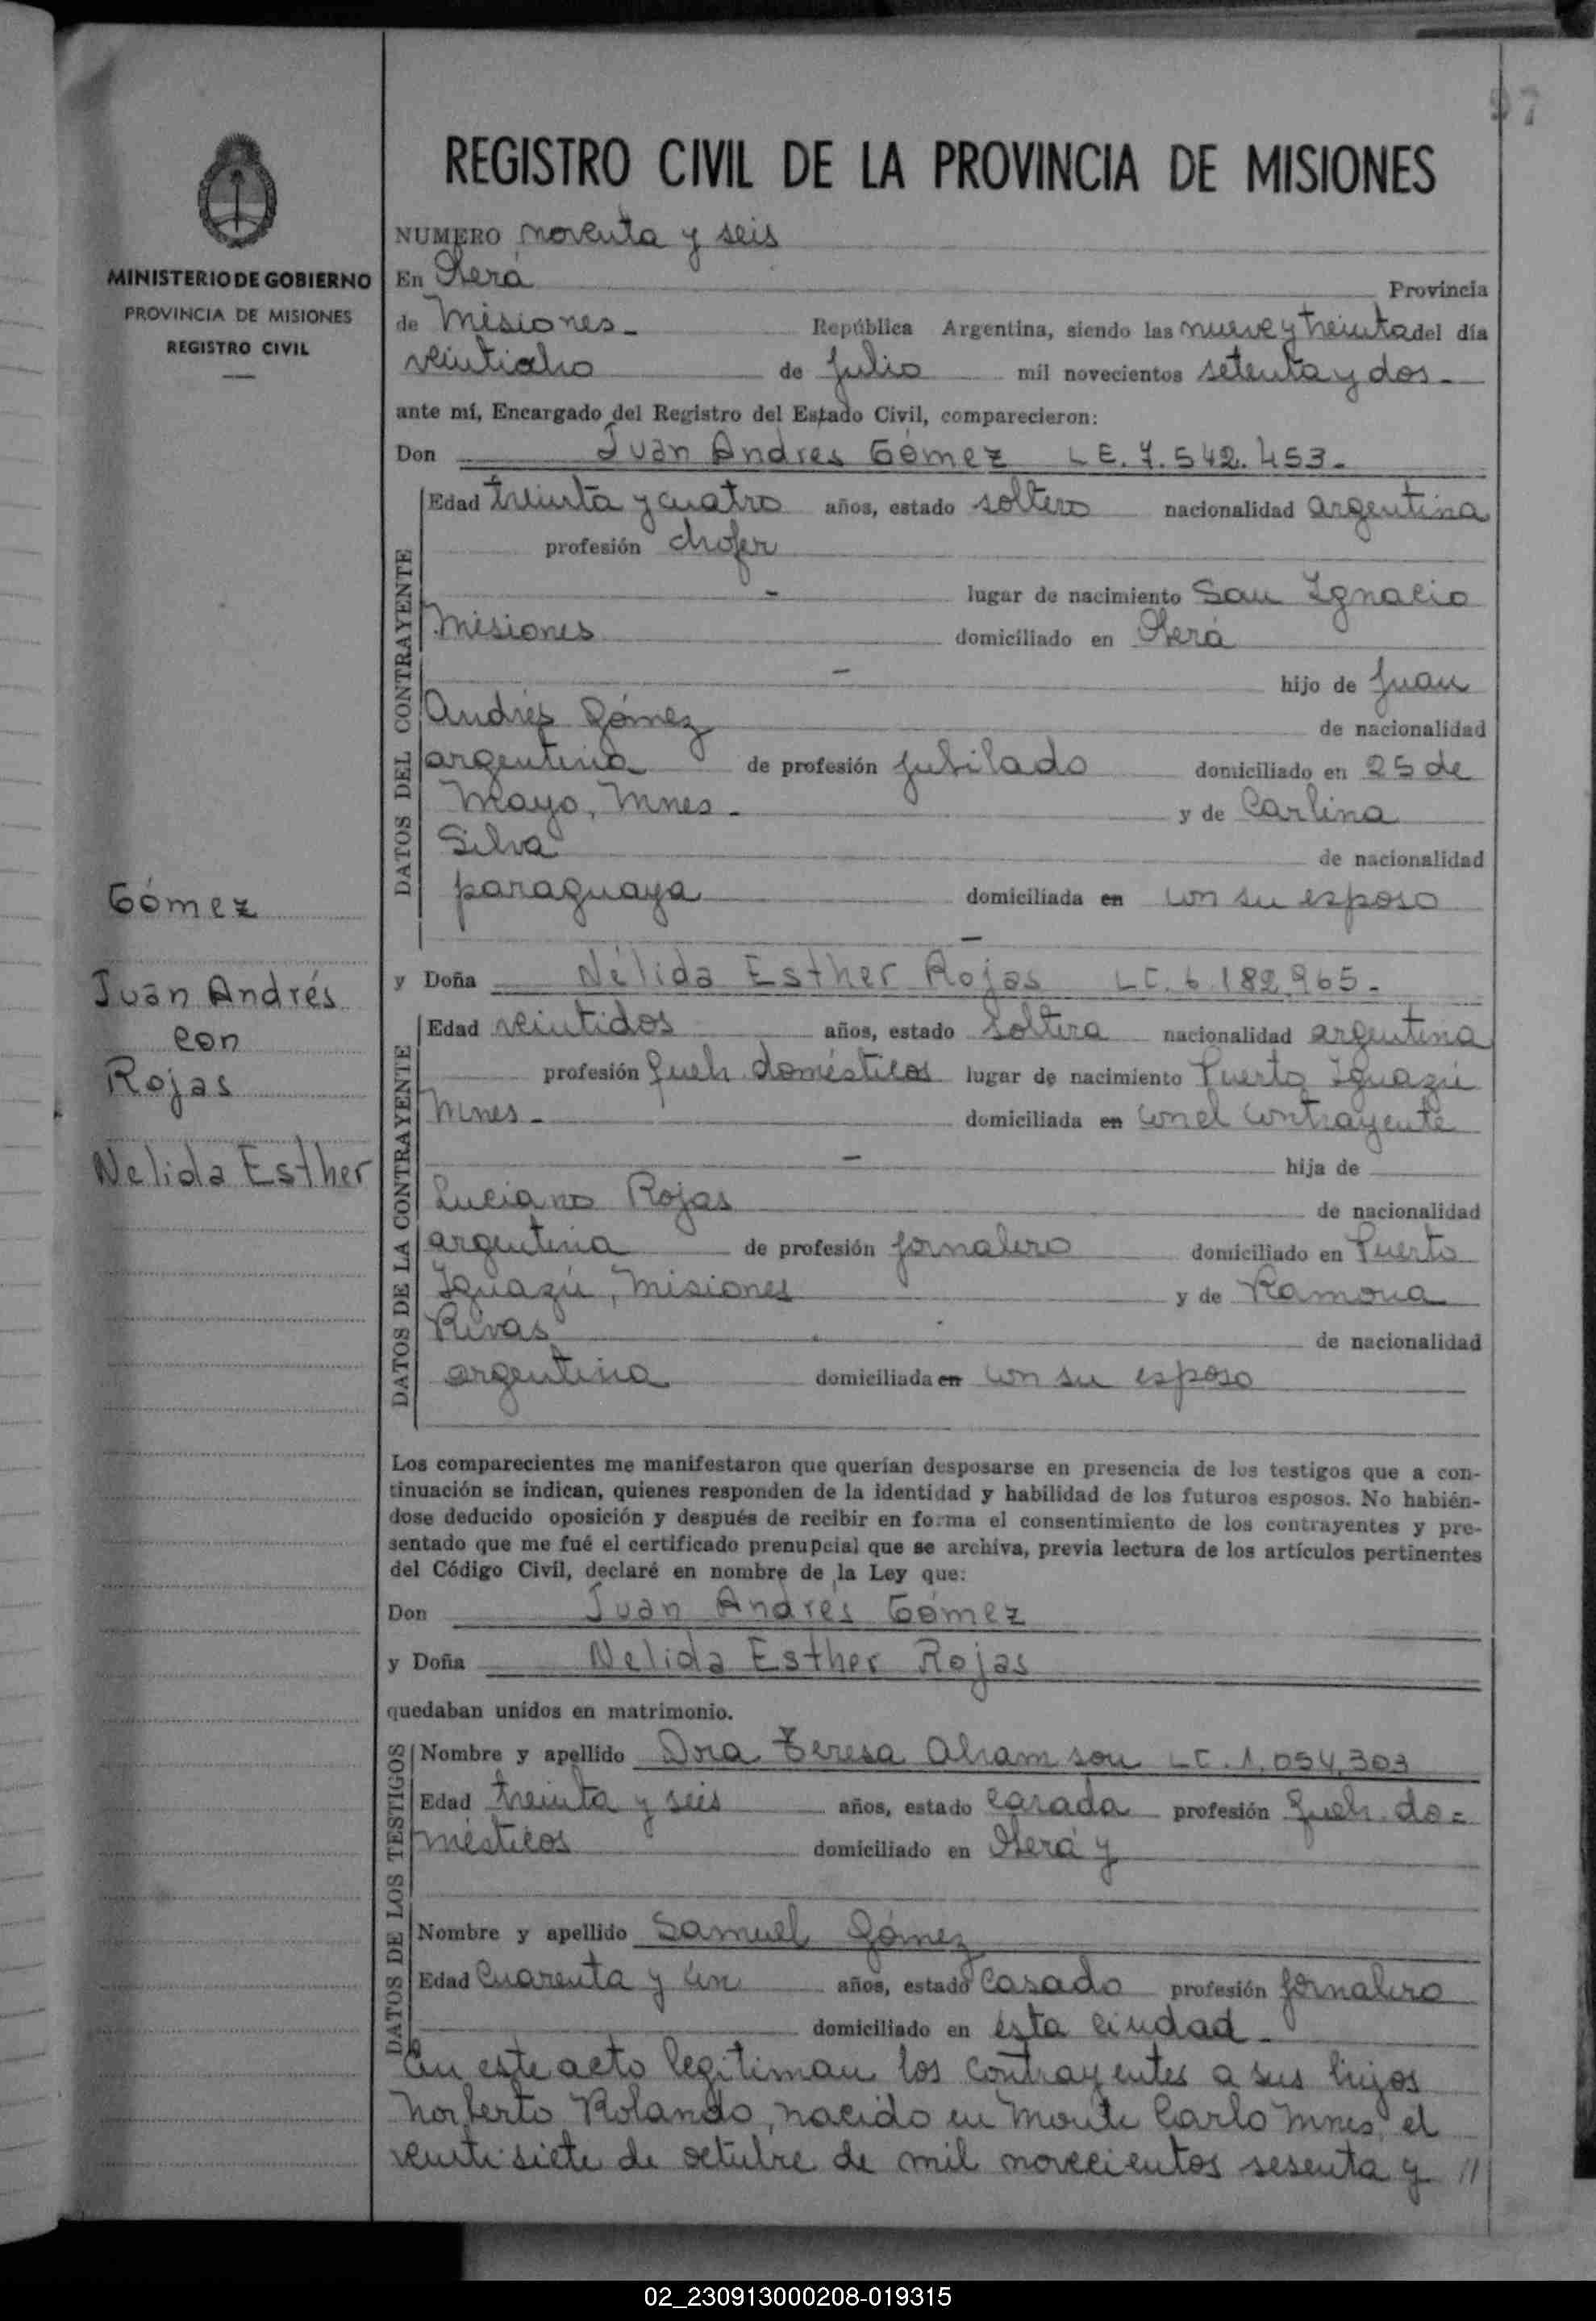 97
REGISTRO CIVIL DE LA PROVINCIA DE MISIONES
MINISTERIO DE GOBIERNO
PROVINCIA DE MISIONES
REGISTRO CIVIL
Gómez
Juan Andrés
con
Rojas
Nelida Esther
NUMERO noventa y seis
En Oberá Provincia
de Misiones - República Argentina, siendo las nueve y treinta del día
veintiocho de Julio mil novecientos setenta y dos -
ante mí, Encargado del Registro del Estado Civil, comparecieron:
Don Juan Andres Gómez L E. 7.542.453.-
DATOS DEL CONTRAYENTE
Edad treinta y cuatro años, estado soltero nacionalidad argentina
profesión chofer
- lugar de nacimiento San Ignacio
Misiones domiciliado en Oberá
- hijo de Juan
Andrés Gómez de nacionalidad
argentina de profesión jubilado domiciliado en 25 de
Mayo, Mnes - y de Carlina
Silva de nacionalidad
paraguaya domiciliada en con su esposo
-
y Doña Nélida Esther Rojas L C. 6 182.965.-
DATOS DE LA CONTRAYENTE
Edad veintidos años, estado soltera nacionalidad argentina
profesión Queh. domésticos lugar de nacimiento Puerto Iguazú
Mnes - domiciliada en con el contrayente
- hija de
Luciano Rojas de nacionalidad
argentina de profesión jornalero domiciliado en Puerto
Iguazú, Misiones y de Ramona
Rivas de nacionalidad
argentina domiciliada en con su esposo
Los comparecientes me manifestaron que querían desposarse en presencia de los testigos que a con-
tinuación se indican, quienes responden de la identidad y habilidad de los futuros esposos. No habién-
dose deducido oposición y después de recibir en forma el consentimiento de los contrayentes y pre-
sentado que me fué el certificado prenupcial que se archiva, previa lectura de los artículos pertinentes
del Código Civil, declaré en nombre de la Ley que:
Don Juan Andrés Gómez
y Doña Nelida Esther Rojas
quedaban unidos en matrimonio.
DATOS DE LOS TESTIGOS
Nombre y apellido Dora Teresa L C. 1.054.303
Edad treinta y seis años, estado casada profesión Queh. do=
mésticos domiciliado en Oberá y
Nombre y apellido Samuel Gómez
Edad Cuarenta y un años, estado casado profesión jornalero
domiciliado en ésta ciudad -
En este acto legitiman los contrayentes a sus hijos
Norberto Rolando, nacido en Monte Carlo Mnes, el
veintisiete de octubre de mil novecientos sesenta y //
02_230913000208-019315